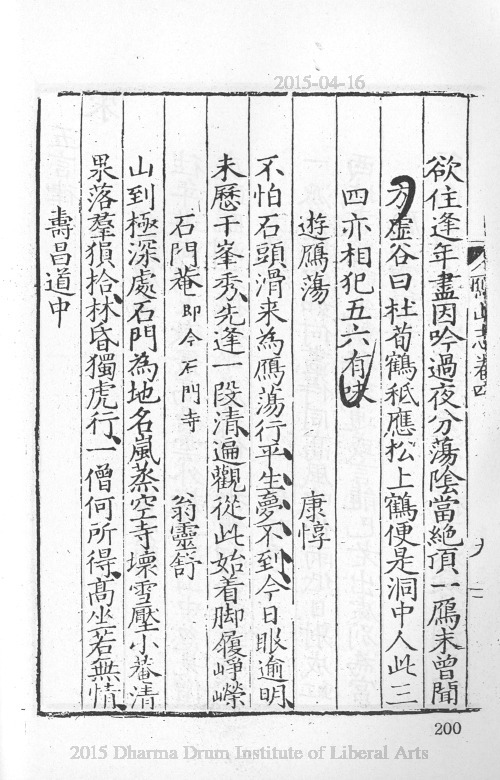 2015-04-16
欲住逢年盡因吟過夜分蕩陰當絶頂一鴈未曽聞
方虚谷曰杜荀鶴秪應松上鶴便是洞中人此三
四亦相犯五六有味
遊鴈蕩 康惇
不怕石頭滑来為鴈蕩行平生夢不到今日眼逾明
未歴千峯秀先逢一段清遍觀從此始着脚履崢嶸
石門菴即今石門寺 翁靈舒
山到極深處石門為地名嵐蒸空寺壞雪壓小菴清
果落羣猿拾林昏獨虎行一僧何所得高坐若無情
壽昌道中
鴈山志卷四
200
2015 Dharma Drum Institute of Liberal Arts